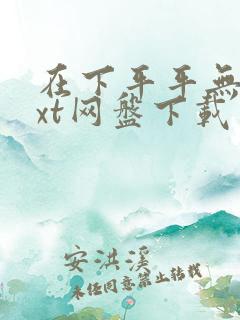 在下平平無
xt网盘下载
安洪溪
未经同意禁止转载